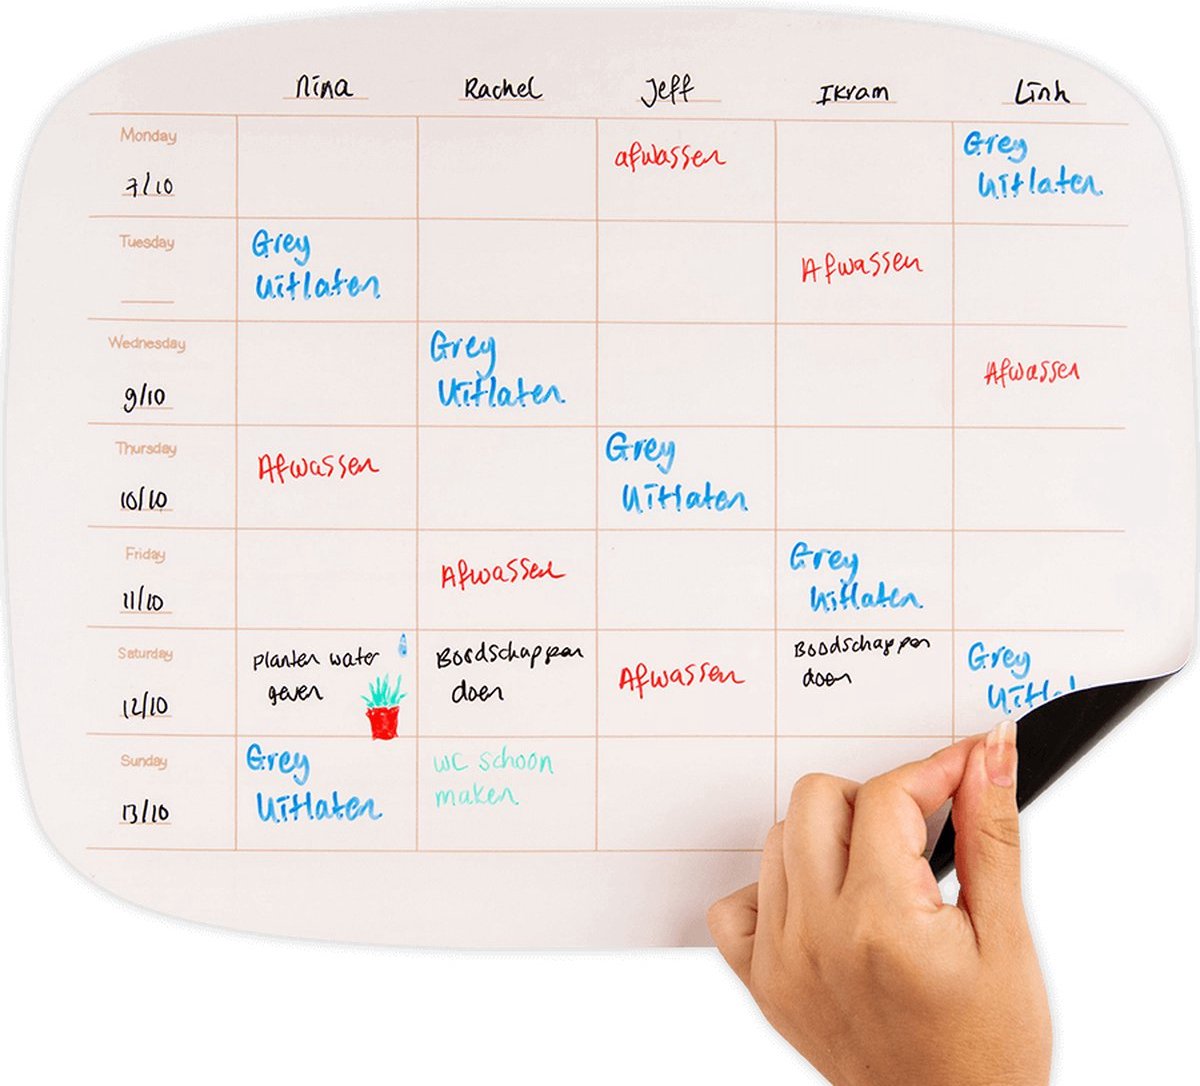 Nina Rachel Jeff Ikram Linh
Monday
7/10
afwassen
Grey
Uitlaten
Tuesday
Grey
Uitlaten
Afwassen
Wednesday
9/10
Grey
Uitlaten
Afwassen
Thursday
10/10
Afwassen
Grey
Uitlaten
Friday
11/10
Afwassen
Grey
Uitlaten
Saturday
12/10
Planten water
geven
Boodschappen
doen
Afwassen
Boodschappen
doen
Grey
Sunday
13/10
Grey
Uitlaten
WC schoon
maken